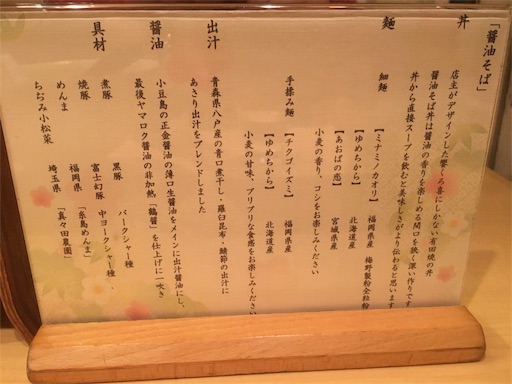 「醤油そば」
丼
店主がデザインした響くろ喜にしかない有田焼の丼
醤油そば丼は醤油の香りを楽しめる間口を狭く深い作りです
丼から直接スープを飲むと美味しさがより伝わると思います
麺
細麺
【ミナミノカオリ】 福岡県産 梅野製粉全粒粉
【ゆめちから】 北海道産
【あおばの恋】 宮城県産
小麦の香り、コシをお楽しみください
手揉み麺
【チクゴイズミ】 福岡県産
【ゆめちから】 北海道産
小麦の甘味、プリプリな食感をお楽しみください
出汁
青森県八戸産の青口煮干し・羅臼昆布・鯖節の出汁に
あさり出汁をブレンドしました
醤油
小豆島の正金醤油の薄口生醤油をメインに出汁醤油にし、
最後ヤマロク醤油の非加熱「鶴醤」を仕上げに一吹き
具材
煮豚 黒豚 バークシャー種
焼豚 富士幻豚 中ヨークシャー種、
めんま 福岡県 「糸島めんま」
ちぢみ小松菜 埼玉県 「真々田農園」